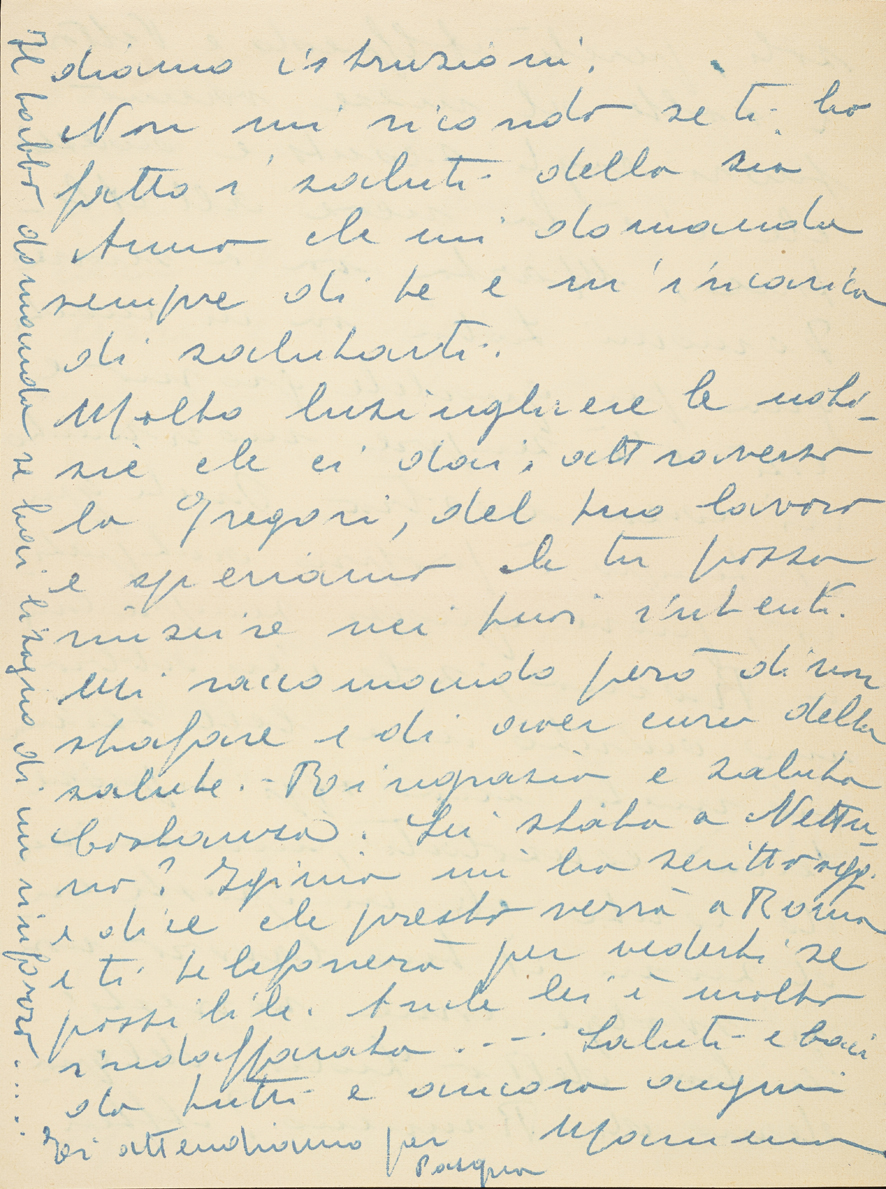 diamo istruzioni.
Non mi ricordo se ti ho
fatto i saluti della zia
Anna che mi domanda
sempre di te e m'incarica
di salutarti.
Molto lusinghiere le noti-
zie che ci dai, attraverso
la Gregori, del tuo lavoro
e speriamo che tu possa
riuscire nei tuoi intenti.
Mi raccomando però di non
strafare e di aver cura della
salute. - Ringrazia e saluta
Costanza. Sei stata a Nettu-
no? Iginia mi ha scritto oggi
e dice che presto verrà a Roma
e ti telefonerà per vederti se
possibile. Anche lei è molto
indaffarata. - - - Saluti e baci
da tutti e ancora auguri
Mamma
Ti attendiamo per
Pasqua
Il babbo domanda se hai bisogno di un rinforzo . . . .